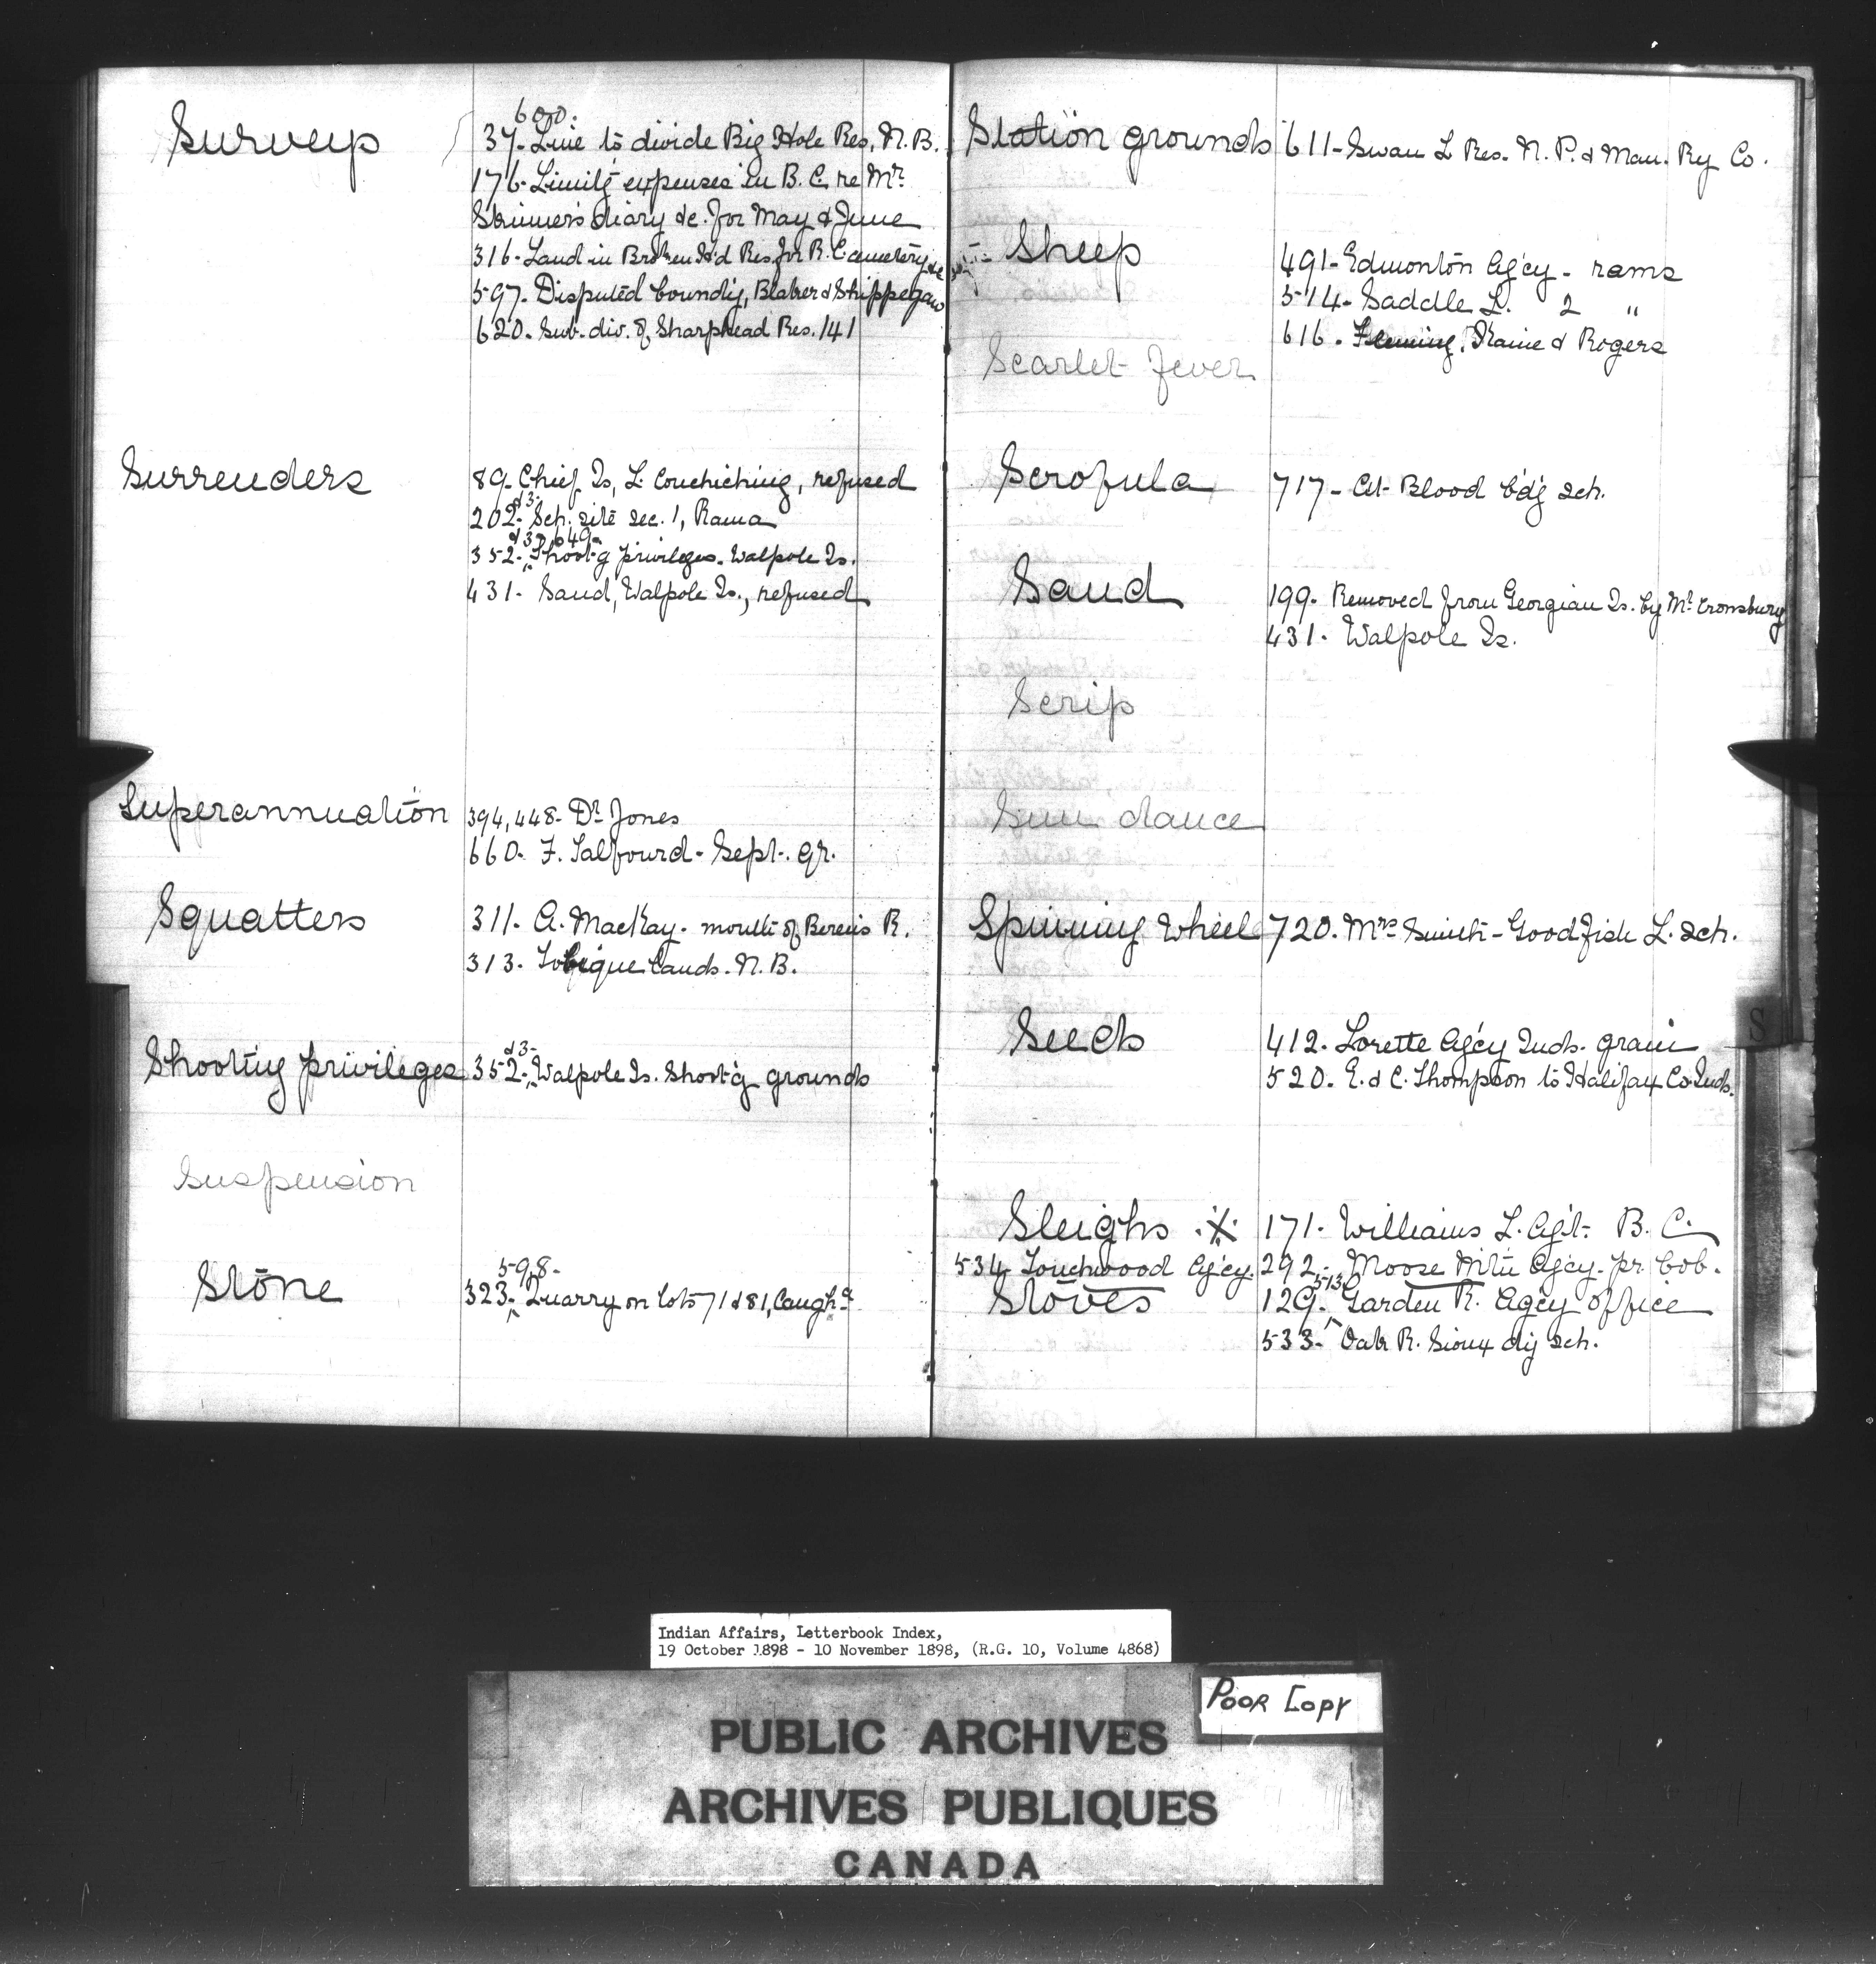 Surveys
600.
37. Line to divide Big Hole Res, N.B.
176. Limit'g expenses in B.C. re Mr.
Skinner's diary &c. for May & June
316. Land in Broken H'd Res. for R.C. cemetery &c
597. Disputed bound'y, &
620. Sub-div. of Sharphead Res. 141
Surrenders
89. Chief Is, L. Couchiching, refused
& 3-
202. Sch. site sec. 1, Rama
& 3, 649-
352. Shoot'g privileges. Walpole Is.
431. Sand, Walpole Is., refused
Superannuation
394, 448. Dr. Jones
660. F. Talfourd - Sept. qr.
Squatters
311. A. MacKay. mouth of Berens R.
313. Tobique Lands. N.B.
Shooting privileges
& 3-
352. Walpole Is. Shoot'g grounds
Suspension
Stone
598-
323. Quarry on lots 71 & 81, Caugh'a
Station grounds 611 - Swan L Res. N.P. & Man. Ry Co.
Sheep
491 - Edmonton Ag'cy - rams
514 - Saddle L. 2 "
616. Fleming, & Rogers
Scarlet fever
Scrofula
717 - At Blood b'd'g sch.
Sand
199. Removed from Georgian Is. by Mr. Cronsbury
431. Walpole Is.
Scrip
Sun dance
Spinning Wheel 720. Mrs Smith - Goodfish L. sch.
Seeds
412. Lorette Ag'cy Inds. grain
520. E. & C. Thompson to Halifax Co. Inds.
Sleighs
171. Williams L. Ag't. B.C.
534 Touchwood Ag'cy. 292. Moose Mt'n Ag'cy. pr. bob.
Stoves
513
129. Garden R. Ag'cy office
533. Oak R. Sioux d'y sch.
S
Indian Affairs, Letterbook Index,
19 October 1898 - 10 November 1898, (R.G. 10, Volume 4868)
POOR COPY
PUBLIC ARCHIVES
ARCHIVES PUBLIQUES
CANADA